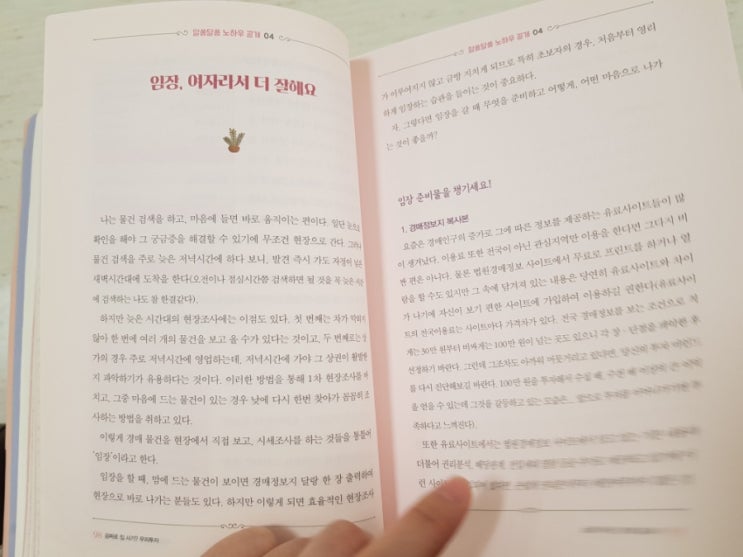 알쏭달쏭 노하우 공개 04
임장, 여자라서 더 잘해요
나는 물건 검색을 하고, 마음에 들면 바로 움직이는 편이다. 일단 눈으로
확인을 해야 그 궁금증을 해결할 수 있기에 무조건 현장으로 간다. 그러나
물건 검색을 주로 늦은 저녁시간에 하다 보니, 발견 즉시 가도 자정이 넘은
새벽시간대에 도착을 한다(오전이나 점심시간쯤 검색하면 될 것을 꼭 늦은 시간
에 검색하는 나도 참 한결같다).
하지만 늦은 시간대의 현장조사에는 이점도 있다. 첫 번째는 차가 막히지
않아 한 번에 여러 개의 물건을 보고 올 수가 있다는 것이고, 두 번째로는 상
가의 경우 주로 저녁시간에 영업하는데, 저녁시간에 가야 그 상권이 활발한
지 파악하기가 유용하다는 것이다. 이러한 방법을 통해 1차 현장조사를 마
치고, 그중 마음에 드는 물건이 있는 경우 낮에 다시 한번 찾아가 꼼꼼히 조
사하는 방법을 취하고 있다.
이렇게 경매 물건을 현장에서 직접 보고, 시세조사를 하는 것들을 통틀어
'임장'이라고 한다.
임장을 할 때, 맘에 드는 물건이 보이면 경매정보지 달랑 한 장 출력하여
현장으로 바로 나가는 분들도 있다. 하지만 이렇게 되면 효율적인 현장조사
알쏭달쏭 노하우 공개 04
가 이루어지지 않고 금방 지치게 되므로 특히 초보자의 경우, 처음부터 영리
하게 임장하는 습관을 들이는 것이 중요하다.
자, 그렇다면 임장을 갈 때 무엇을 준비하고 어떻게, 어떤 마음으로 나가
는 것이 좋을까?
임장 준비물을 챙기세요!
1. 경매정보지 복사본
요즘은 경매인구의 증가로 그에 따른 정보를 제공하는 유료사이트들이 많
이 생겨났다. 이용료 또한 전국이 아닌 관심지역만 이용을 한다면 그다지 비
싼 편은 아니다. 물론 법원경매정보 사이트에서 무료로 프린트를 하거나 열
람을 할 수도 있지만 그 속에 담겨져 있는 내용은 당연히 유료사이트와 차이
가 나기에 자신이 보기 편한 사이트에 가입하여 이용하길 권한다(유료사이
트의 전국이용료는 사이트마다 가격차가 있다. 전국 경매정보를 보는 조건으로 적
게는 30만 원부터 비싸게는 100만 원이 넘는 곳도 있으니 각 장·단점을 파악한 후
선정하기 바란다. 그런데 그조차도 아까워 머뭇거리고 있다면, 당신의 투자 마인드
를 다시 진단해보길 바란다. 100만 원을 투자해서 수십 배, 수백 배
을 얻을 수 있는데 그것을 갈등하고 있는 모습은
족하다고 느껴진다).
또한 유료사이트에서는 법원경매정보
더불어 권리분석,
런 사이